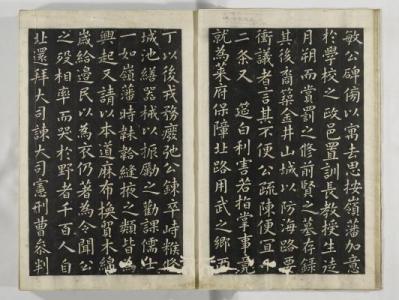 敏公碑倚以寓去思按嶺藩加意
於學校之政邑置訓長教楑生逵
月朔而賞罰之修前賢之墓存録
其後裔築金井山城以防海路要
衝議者言其不便公疏陳便宜十
二条又 筵白利害若指掌事竟
就為萊府保障北路用武之鄉而
丁以後戎務廢弛公鍊卒峙糇修
城池繕器械以振勵之勸課儒士
一如嶺藩時韎韐縫掖之類皆為
興起又請以本道麻布換貿木綿
歲給邊民以為衣仍著為令聞公
之歿相率而哭於野者千百人自
北還拜大司諫大司憲刑曹叅判